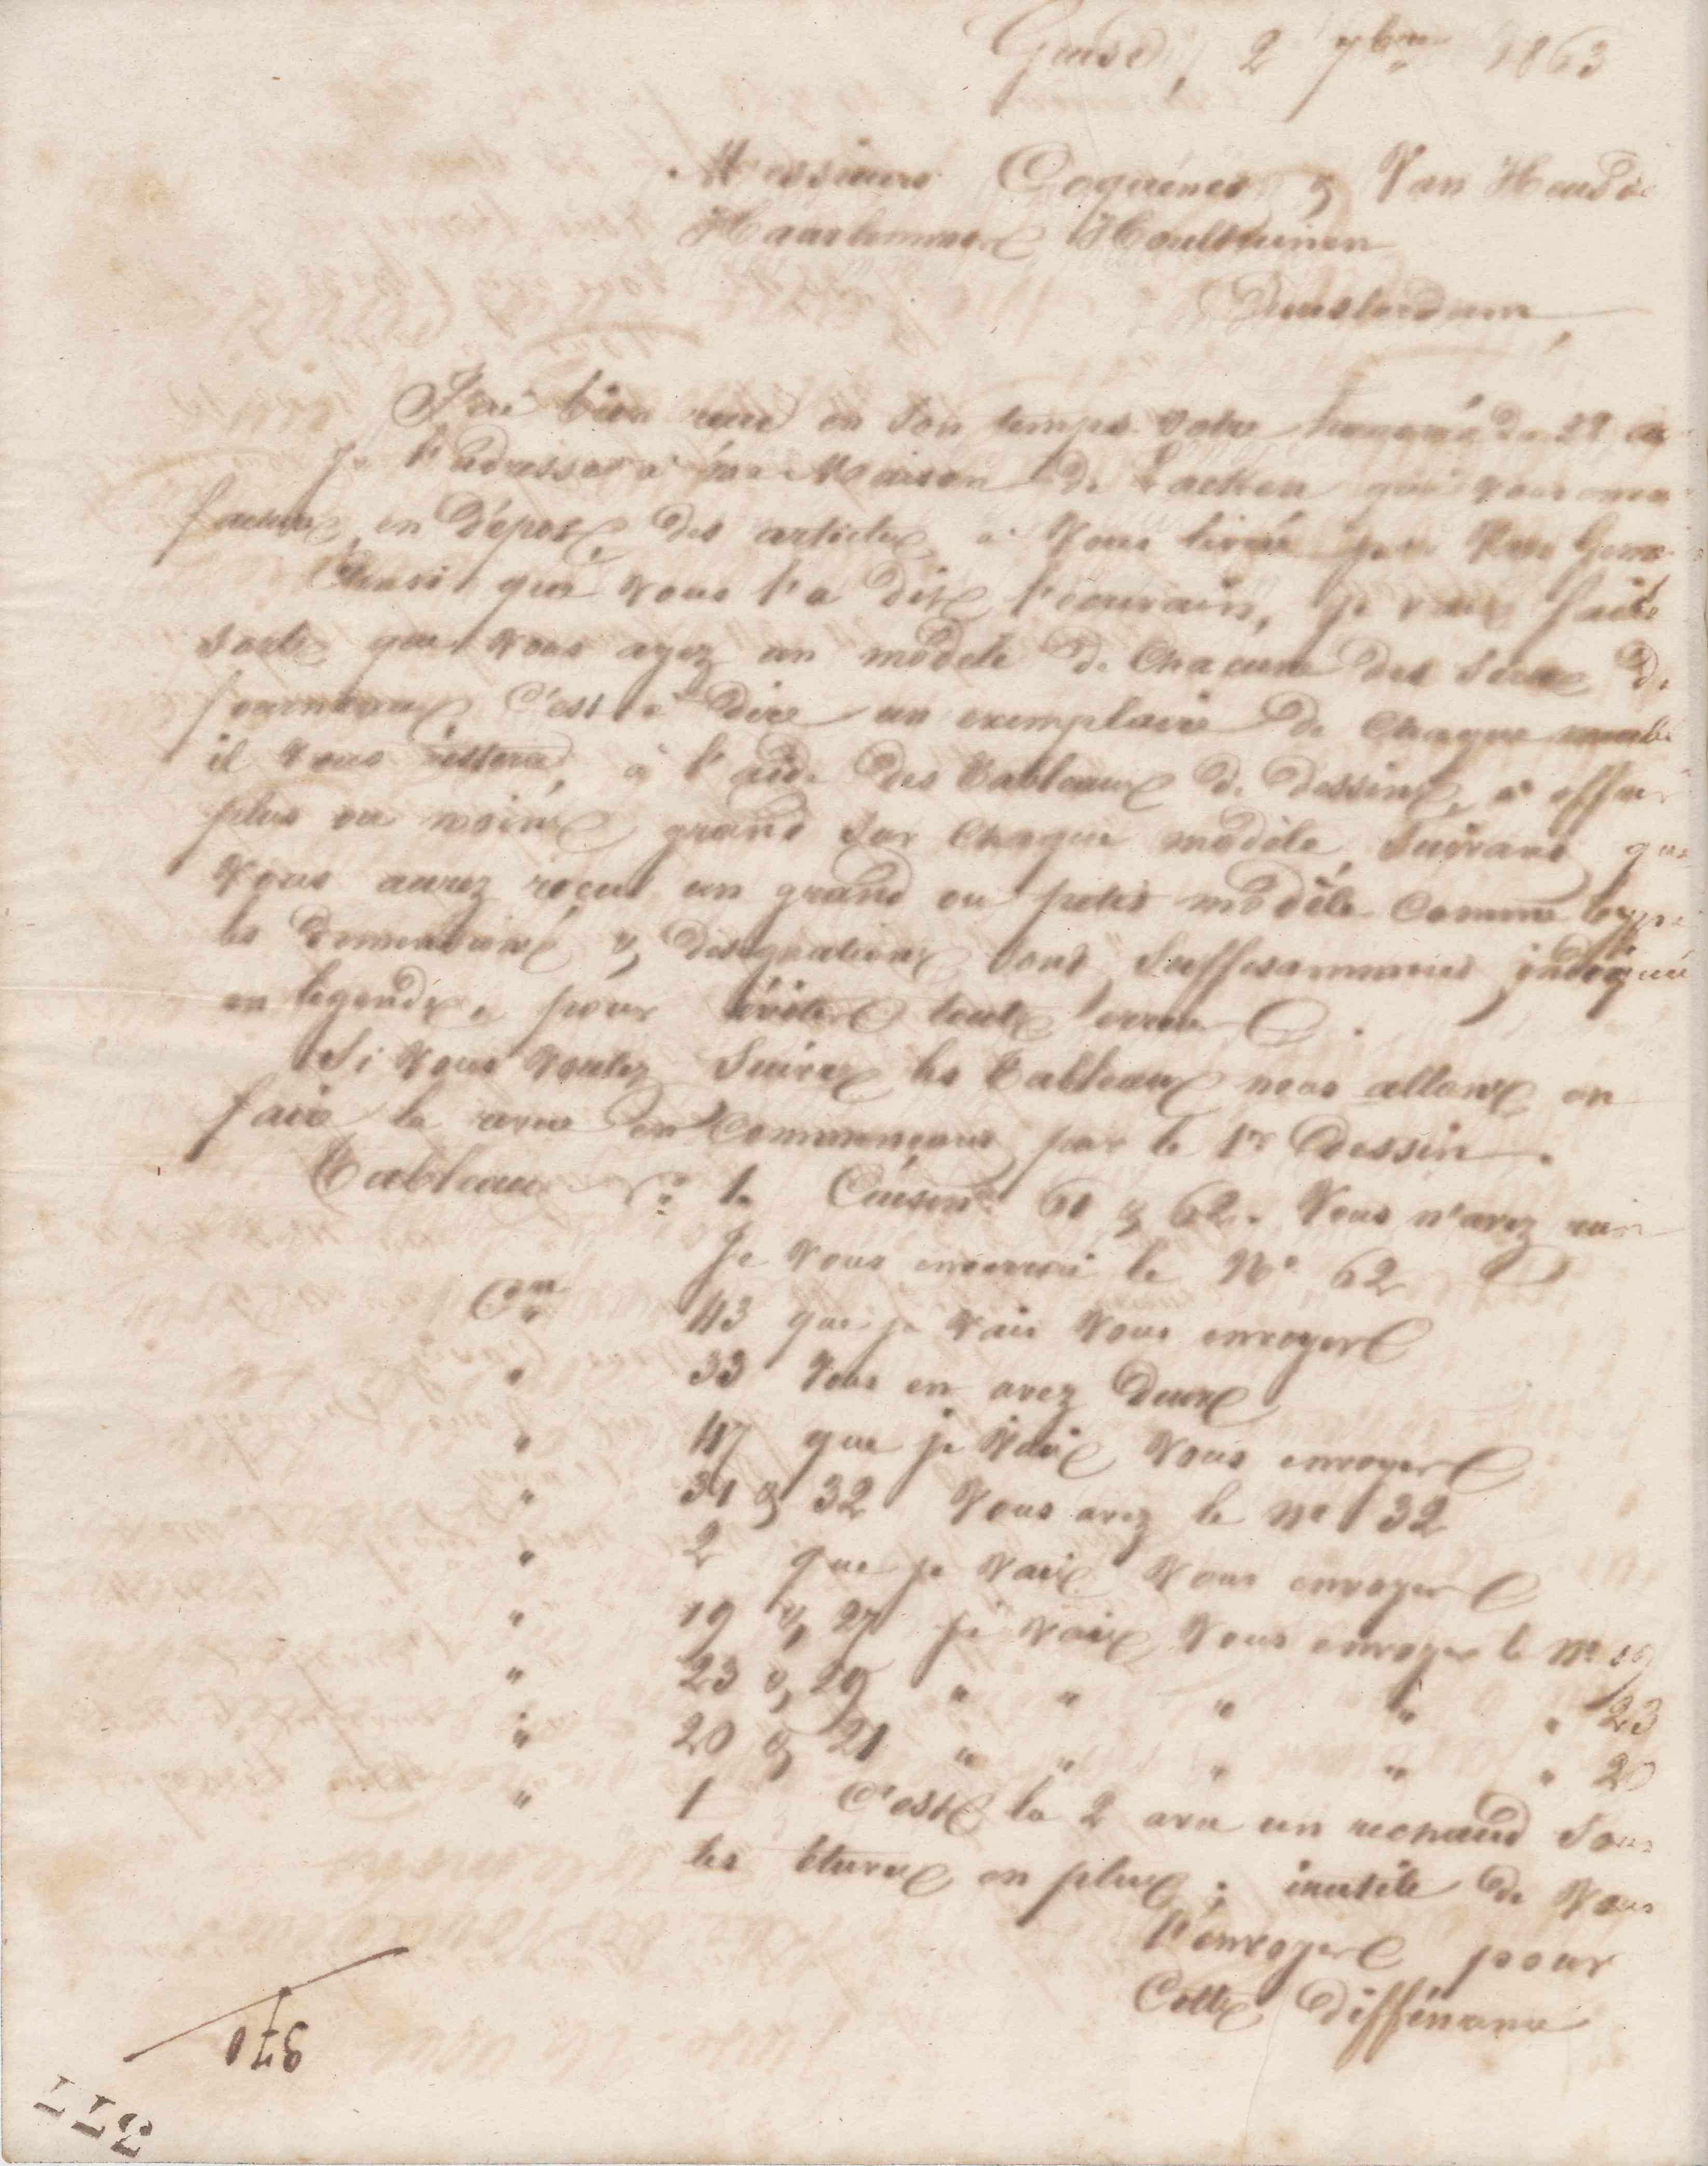 Guise, 2 7bre 1863
Messieurs Coquénes & Van Heusde
Haarlemmer Houttuinen
Amsterdam
J'ai bien reçu en son temps votre honorée du 22
Je l'adressai à ma Maison de Laeken qui vous
facture en dépôt des articles à vous livrés par
Ainsi que vous l'a dit l'écrivain, je vais faire
sorte que vous ayez un modèle de chacune des série de
fourneaux, c'est à dire un exemplaire de chaque
il vous restera, à l'aide des tableaux de dessins, à offrir
plus ou moins grand sur chaque modèle, suivant que
vous aurez reçu un grand ou petit modèle comme type
les dimensions & désignations sont suffisamment indiquées
en légende, pour éviter toute erreur.
Si vous voulez suivre les tableaux nous allons en
faire la revue en commençant par le 1er dessin.
Tableau la Cuisine 61 & 62. Vous n'avez rien
Je vous enverrai le No 62
43 que je vais vous envoyer
" 33 Vous en avez deux
" 47 que je vais vous envoyer
" 31 & 32 Vous avez le No 32
" 2 que je vais vous envoyer
" 19 & 27 je vais vous envoyer le No 19
" 23 & 29 " " " " " 23
" 20 & 21 " " " " " 20
" 1 C'est le 2 avec un réchaud sous
les étuves en plus; inutile de vous
l'envoyer pour
cette différence
370
377